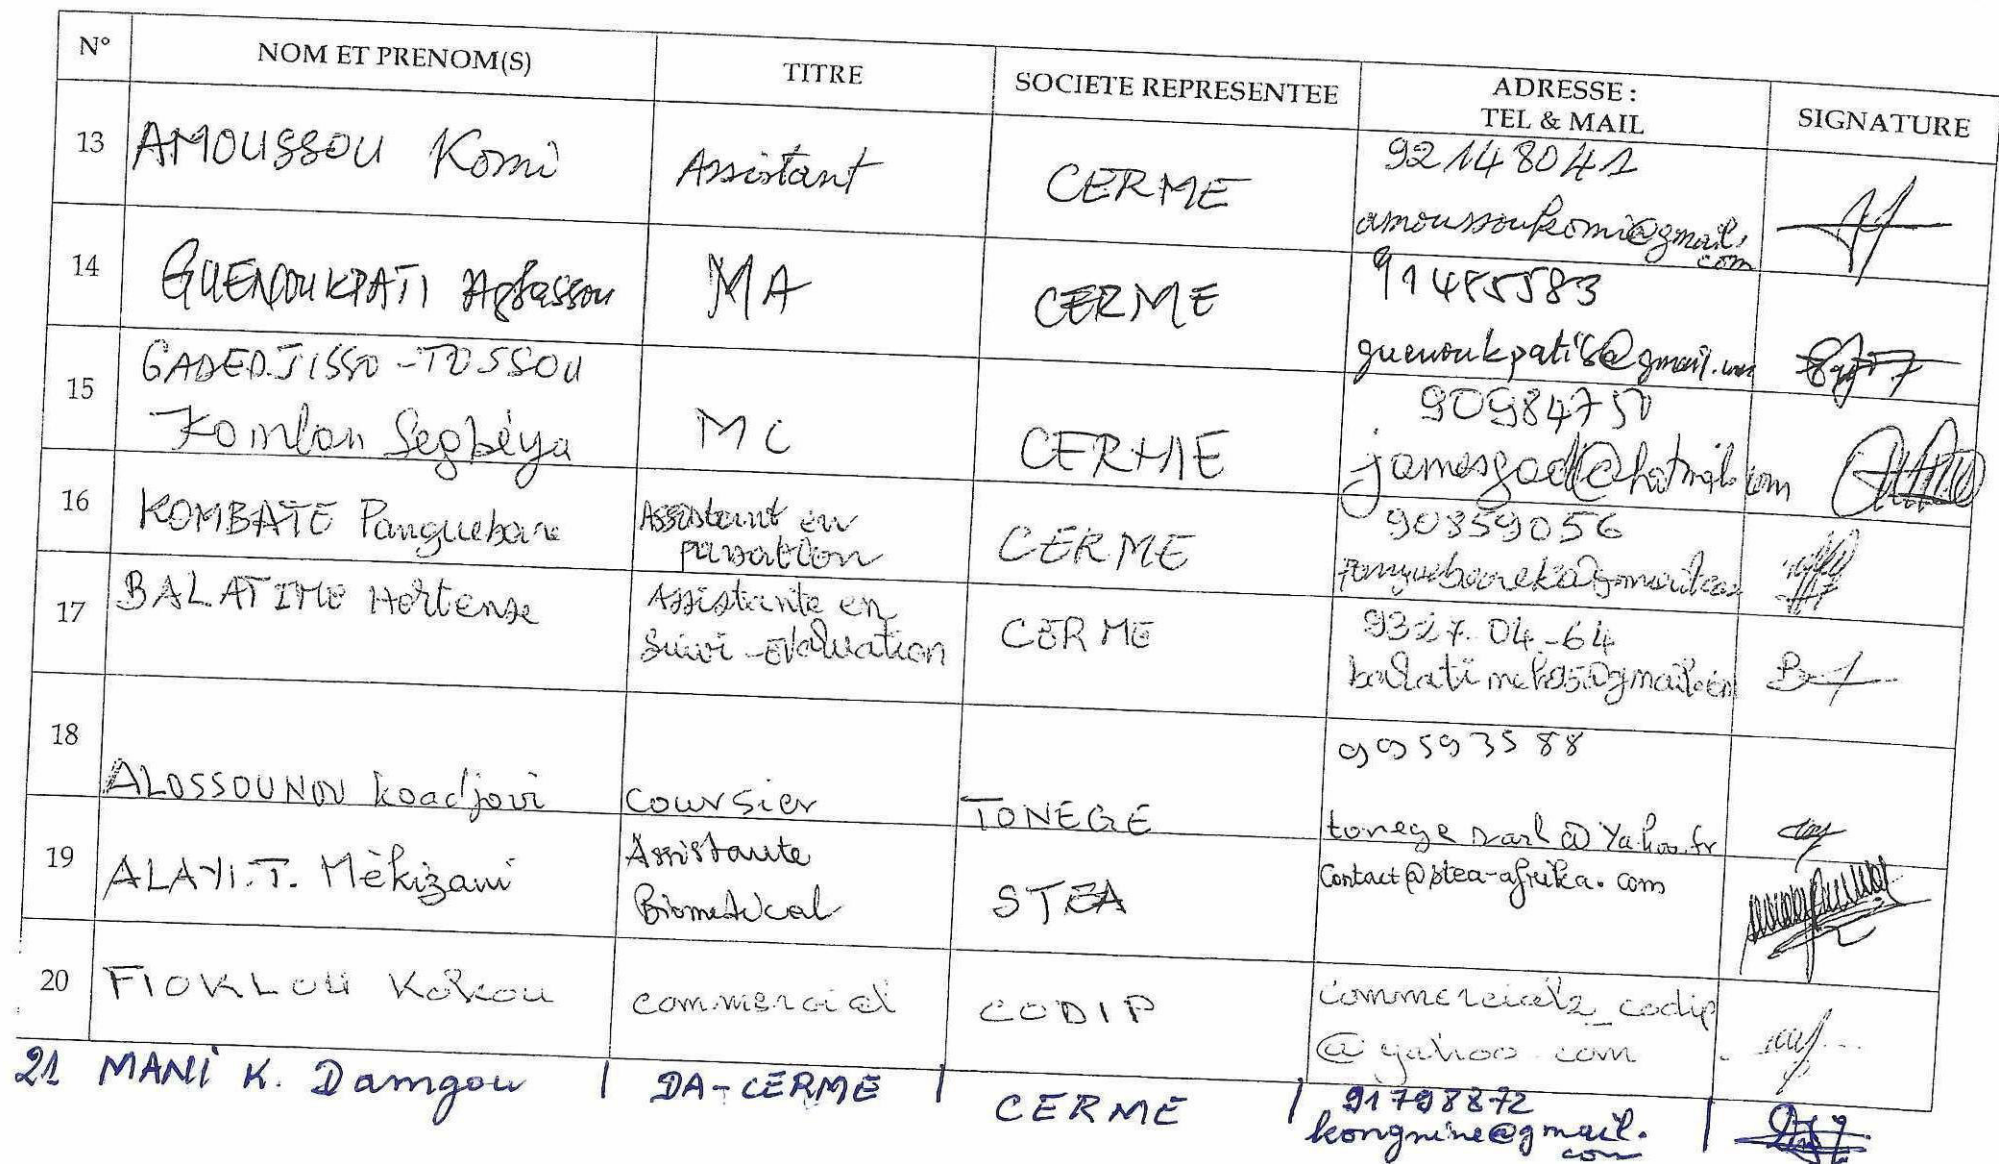 N° NOM ET PRENOM(S) TITRE SOCIETE REPRESENTEE ADRESSE : TEL & MAIL SIGNATURE
13 AMOUSSOU Komi Assistant CERME 92148041
amoussoukomi@gmail.
com
14 GUENOUKPATI Agbassou MA CERME 91455583
guenoukpatis@gmail.com
15 GADEDJISSO-TOSSOU
Komlan Segbéya MC CERME 90984750
jamesgad@hotmail.com
16 KOMBATE Panguebare Assistant en
passation CERME 90859056
panguebareka@gmail.com
17 BALATIME Hortense Assistante en
suivi-evaluation CERME 9327.04-64
@gmail.com
18 ALOSSOUNOU koadjovi coursier TONEGE 99593588
tonege sarl @ Yahoo.fr
19 ALAYI.T. Mèkizani Assistante
Biomedical STEA Contact@stea-afrika.com
20 FIOKLOU Kokou commercial CODIP commercial2_codip
@yahoo.com
21 MANI K. Damgou DA-CERME CERME 91798872
kongnine@gmail.
com